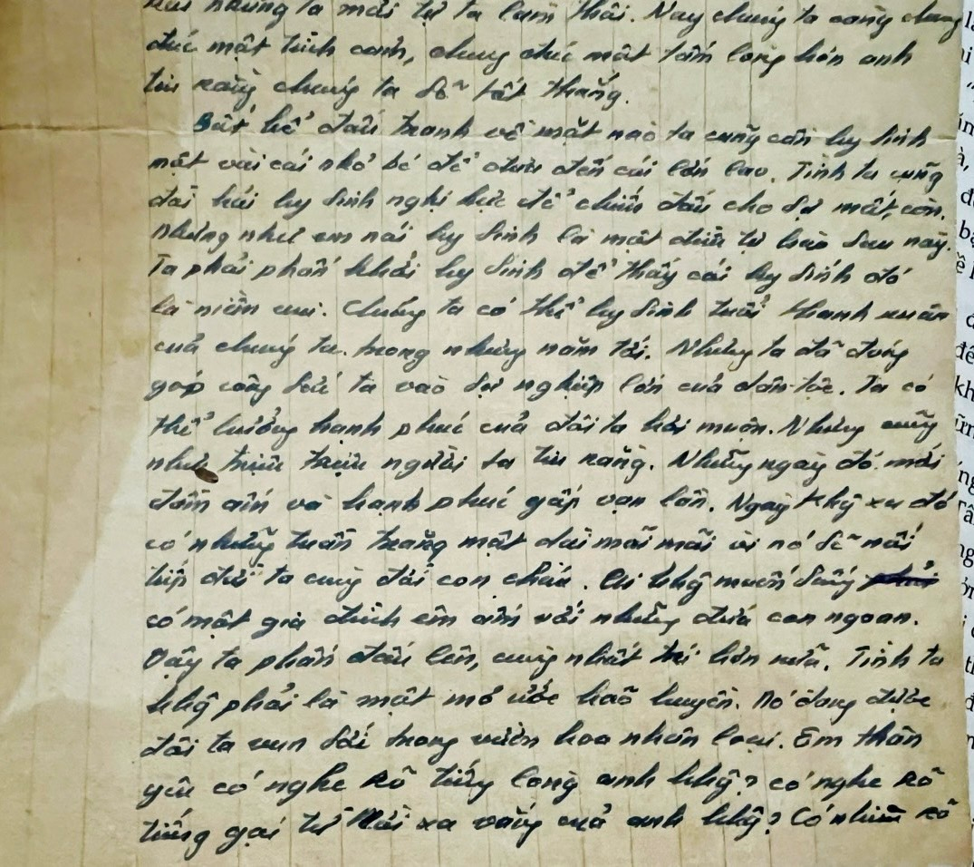 nhưng ta mới tự ta làm thôi. Nay chúng ta cùng chung
chúc một hoàn cảnh, chung chúc một tấm lòng hơn anh
tin rằng chúng ta sẽ tất thắng.
Bất kể đấu tranh về mặt nào ta cũng cần hy sinh
một vài cái nhỏ bé để đưa đến cái lớn lao. Tình ta cũng
đòi hỏi hy sinh nghị lực để chiến đấu cho sự mất, còn.
Nhưng như em nói hy sinh là một điều tự hào sau này.
Ta phải phấn khởi hy sinh để thấy cái hy sinh đó
là niềm vui. Chúng ta có thể hy sinh tuổi thanh xuân
của chúng ta trong những năm tới. Nhưng ta đã đóng
góp công sức ta vào sự nghiệp lớn của dân tộc. Ta có
thể hưởng hạnh phúc của đôi ta hơi muộn. Nhưng cũng
như triệu triệu người ta tin rằng. Những ngày đó mới
đầm ấm và hạnh phúc gấp vạn lần. Ngày khg xa đó
có những tuần trăng mật dài mãi mãi vì nó sẽ nối
tiếp dưới ta cùng đời con cháu. Ai khg muốn sống
có một gia đình êm ấm với những đứa con ngoan.
Vậy ta phấn đấu lên, cùng nhất trí hơn nữa. Tình ta
khg phải là một mơ ước hão huyền. Nó đang được
đôi ta vun xới trong vườn hoa nhân loại. Em thân
yêu có nghe rõ tiếng lòng anh khg? có nghe rõ
tiếng gọi từ nơi xa vắng của anh khg? Có nhìn rõ